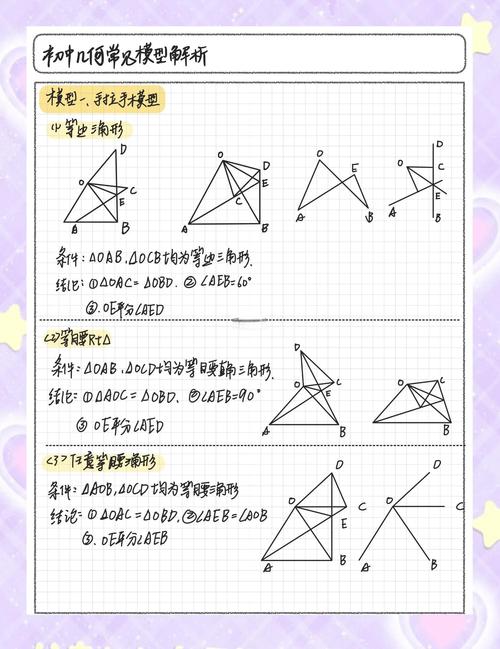 初中几何常见模型解析
模型一、手拉手模型
(1)等边三角形
D
O
C
E
A
B
O
D
E
C
A
B
O
E
A
B
D
O
C
E
A
B
条件:△OAB,△OCB均为等边三角形.
结论:①△OAC=△OBD. ②∠AEB=60°
③.OE平分∠AED
(2)等腰Rt△
条件:△OAB,△OCD均为等腰直角三角形.
结论:①△AOC=△OBD. ②∠AEB=90°
③ OE平分∠AED
D
O
C
E
A
B
O
C
A
B
(3)任意等腰三角形
条件:△AOB,△OCD均为等腰三角形
结论:①△OAC=△OBD.②∠AEB=∠AOB
③.OE平分∠AEB
D
O
C
E
A
B
D
O
C
A
B